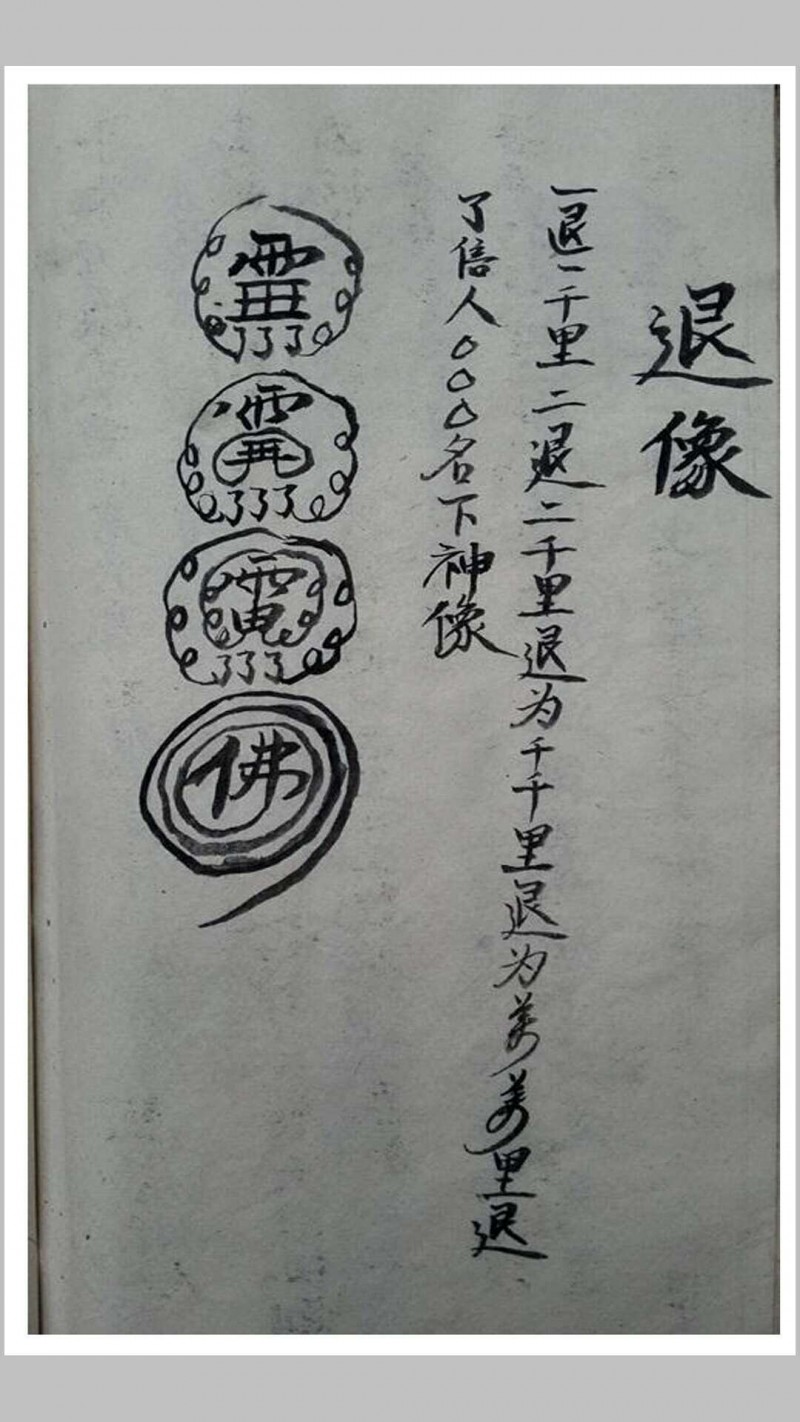 退像
一退一千里二退二千里退为千千里退为萬萬里退
了信人〇〇〇名下神像
佛